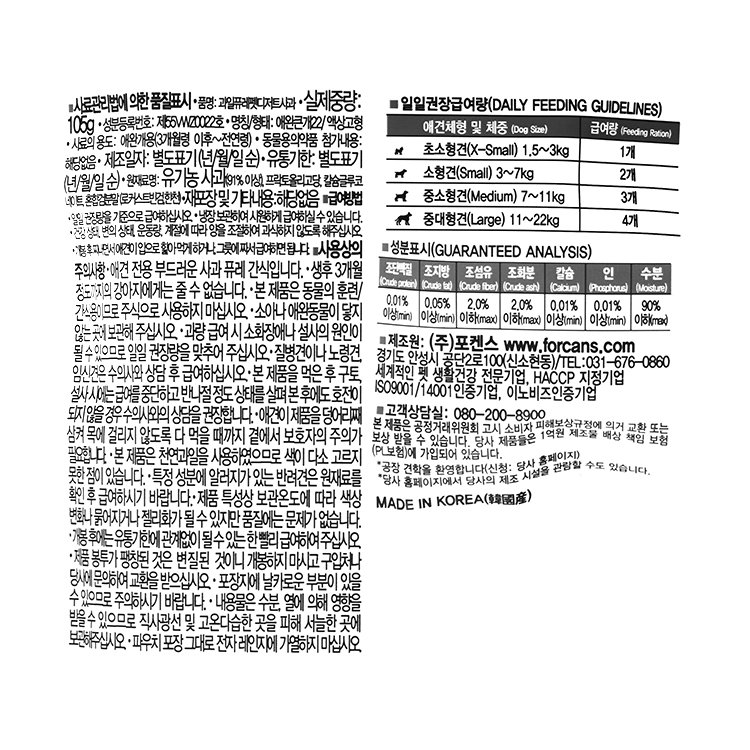 ■사료관리법에 의한 품질표시 • 품명: 과일퓨레펫디저트사과 • 실제중량:
105g • 성분등록번호: 제55VW20022호 • 명칭/형태: 애완큰개22/ 액상고형
• 사료의 용도: 애완개용(3개월령 이후~전연령) • 동물용의약품 첨가내용:
해당없음 • 제조일자: 별도표기(년/월/일 순) • 유통기한: 별도표기
(년/월/일 순) • 원재료명: 유기농 사과(91% 이상), 프락토올리고당, 칼슘글루코
네이트, 혼합겔분말(로커스트빈검한천) • 재포장 및 기타내용: 해당없음 ■급여방법
• 일일 권장량을 기준으로 급여하십시오. • 냉장 보관하여 시원하게 급여하실 수 있습니다.
• 건강 상태, 변의 상태, 운동량, 계절에 따라 양을 조절하여 과식하지 않도록 해주십시오.
애견이 입으로 핥아 먹게 하거나, 그릇에 짜서 급여하면 됩니다. ■사용상의
주의사항 • 애견 전용 부드러운 사과 퓨레 간식입니다. • 생후 3개월
정도까지의 강아지에게는 줄 수 없습니다. • 본 제품은 동물의 훈련/
간식용이므로 주식으로 사용하지 마십시오. • 소아나 애완동물이 닿지
않는 곳에 보관해 주십시오. • 과량 급여 시 소화장애나 설사의 원인이
될 수 있으므로 일일 권장량을 맞추어 주십시오. • 질병견이나 노령견,
임신견은 수의사와 상담 후 급여하십시오. • 본 제품을 먹은 후 구토,
설사 시에는 급여를 중단하고 반나절 정도 상태를 살펴 본 후에도 호전이
되지 않을 경우 수의사와의 상담을 권장합니다. • 애견이 제품을 덩어리째
삼켜 목에 걸리지 않도록 다 먹을 때까지 곁에서 보호자의 주의가
필요합니다. • 본 제품은 천연과일을 사용하였으므로 색이 다소 고르지
못한 점이 있습니다. • 특정 성분에 알러지가 있는 반려견은 원재료를
확인 후 급여하시기 바랍니다. • 제품 특성상 보관온도에 따라 색상
변화나 묽어지거나 젤리화가 될 수 있지만 품질에는 문제가 없습니다.
• 개봉 후에는 유통기한에 관계없이 될 수 있는 한 빨리 급여하여 주십시오.
• 제품 봉투가 팽창된 것은 변질된 것이니 개봉하지 마시고 구입처나
당사에 문의하여 교환을 받으십시오. • 포장지에 날카로운 부분이 있을
수 있으므로 주의하시기 바랍니다. • 내용물은 수분, 열에 의해 영향을
받을 수 있으므로 직사광선 및 고온다습한 곳을 피해 서늘한 곳에
보관해주십시오. • 파우치 포장 그대로 전자 레인지에 가열하지 마십시오.
■일일권장급여량(DAILY FEEDING GUIDELINES)
애견체형 및 체중 (Dog Size) 급여량 (Feeding Ration)
초소형견(X-Small) 1.5~3kg 1개
소형견(Small) 3~7kg 2개
중소형견(Medium) 7~11kg 3개
중대형견(Large) 11~22kg 4개
■성분표시(GUARANTEED ANALYSIS)
조단백질 조지방 조섬유 조회분 칼슘 인 수분
(Crude protein) (Crude fat) (Crude fiber) (Crude ash) (Calcium) (Phosphorus) (Moisture)
0.01% 0.05% 2.0% 2.0% 0.01% 0.01% 90%
이상(min) 이상(min) 이하(max) 이하(max) 이상(min) 이상(min) 이하(max)
■제조원: (주)포켄스 www.forcans.com
경기도 안성시 공단2로100(신소현동)/TEL:031-676-0860
세계적인 펫 생활건강 전문기업, HACCP 지정기업
ISO9001/14001인증기업, 이노비즈인증기업
■고객상담실: 080-200-8900
본 제품은 공정거래위원회 고시 소비자 피해보상규정에 의거 교환 또는
보상 받을 수 있습니다. 당사 제품들은 1억원 제조물 배상 책임 보험
(PL보험)에 가입되어 있습니다.
*공장 견학을 환영합니다(신청: 당사 홈페이지)
*당사 홈페이지에서 당사의 제조 시설을 관람할 수도 있습니다.
MADE IN KOREA(韓國産)